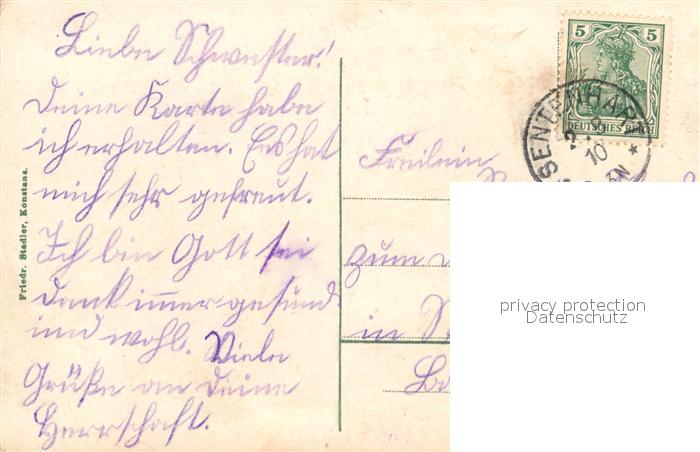 Liebe Schwester!
Deine Karte habe
ich erhalten. Es hat
mich sehr gefreut.
Ich bin Gott sei
dank immer gesund
und wohl. Viele
Grüße an deine
Herrschaft.
Friedr. Stadler, Konstanz.
5 5
DEUTSCHES REICH
SENTENHART
10
Freilein
zum
in
privacy protection
Datenschutz